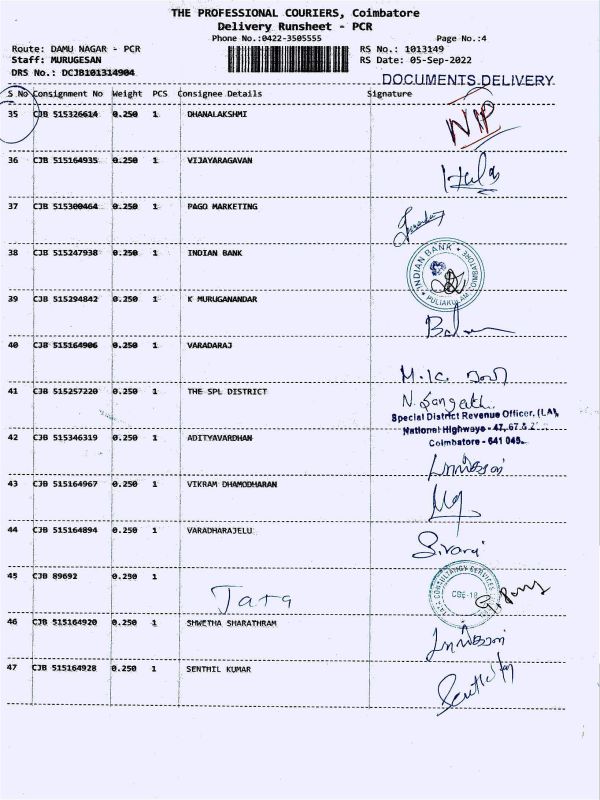 THE PROFESSIONAL COURIERS, Coimbatore
Delivery Runsheet - PCR
Phone No.:0422-3505555 Page No.:4
Route: DAMU NAGAR - PCR RS No.: 1013149
Staff: MURUGESAN RS Date: 05-Sep-2022
DRS No.: DCJB101314904
DOCUMENTS DELIVERY
S No Consignment No Weight PCS Consignee Details Signature
35 CJB 515326614 0.250 1 DHANALAKSHMI
NIP
36 CJB 515164935 0.250 1 VIJAYARAGAVAN
37 CJB 515300464 0.250 1 PAGO MARKETING
38 CJB 515247938 0.250 1 INDIAN BANK
INDIAN BANK
PULIAKULAM
COIMBATORE
39 CJB 515294842 0.250 1 K MURUGANANDAR
40 CJB 515164906 0.250 1 VARADARAJ
M.K.
41 CJB 515257220 0.250 1 THE SPL DISTRICT
N. Sangeeth
Special District Revenue Officer, (LA),
National Highways - 47, 67 &
Coimbatore - 641 045.
42 CJB 515346319 0.250 1 ADITYAVARDHAN
43 CJB 515164967 0.250 1 VIKRAM DHAMODHARAN
44 CJB 515164894 0.250 1 VARADHARAJELU
45 CJB 89692 0.290 1
Tata
TATA CONSULTANCY SERVICES
CBE-18
46 CJB 515164920 0.250 1 SHWETHA SHARATHRAM
47 CJB 515164928 0.250 1 SENTHIL KUMAR